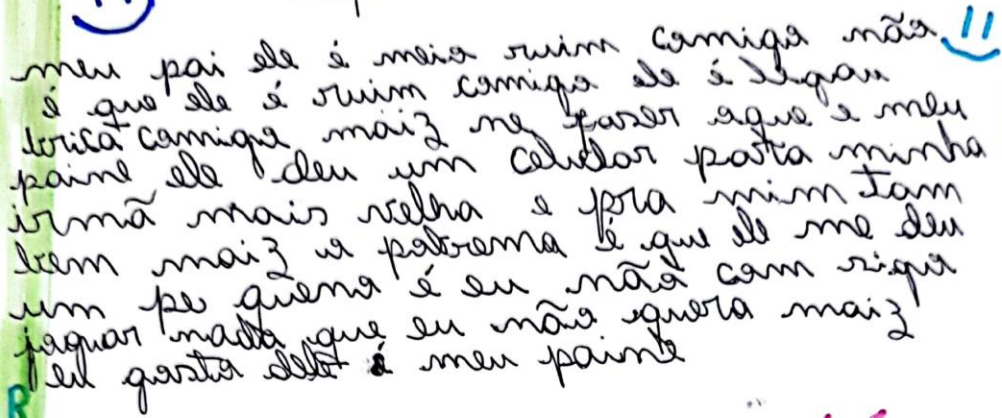 meu pai ele é meio ruim comigo não
é que ele é ruim comigo ele é legau
brica comigo maiz ne faser oque e meu
paine ele deu um celular pata minha
irmã mais velha e pra mim tam
bem maiz o pobrema é que ele me deu
um pe queno é eu não com sigo
joguar nada que eu não quero maiz
eu gosto dele é meu paine
R